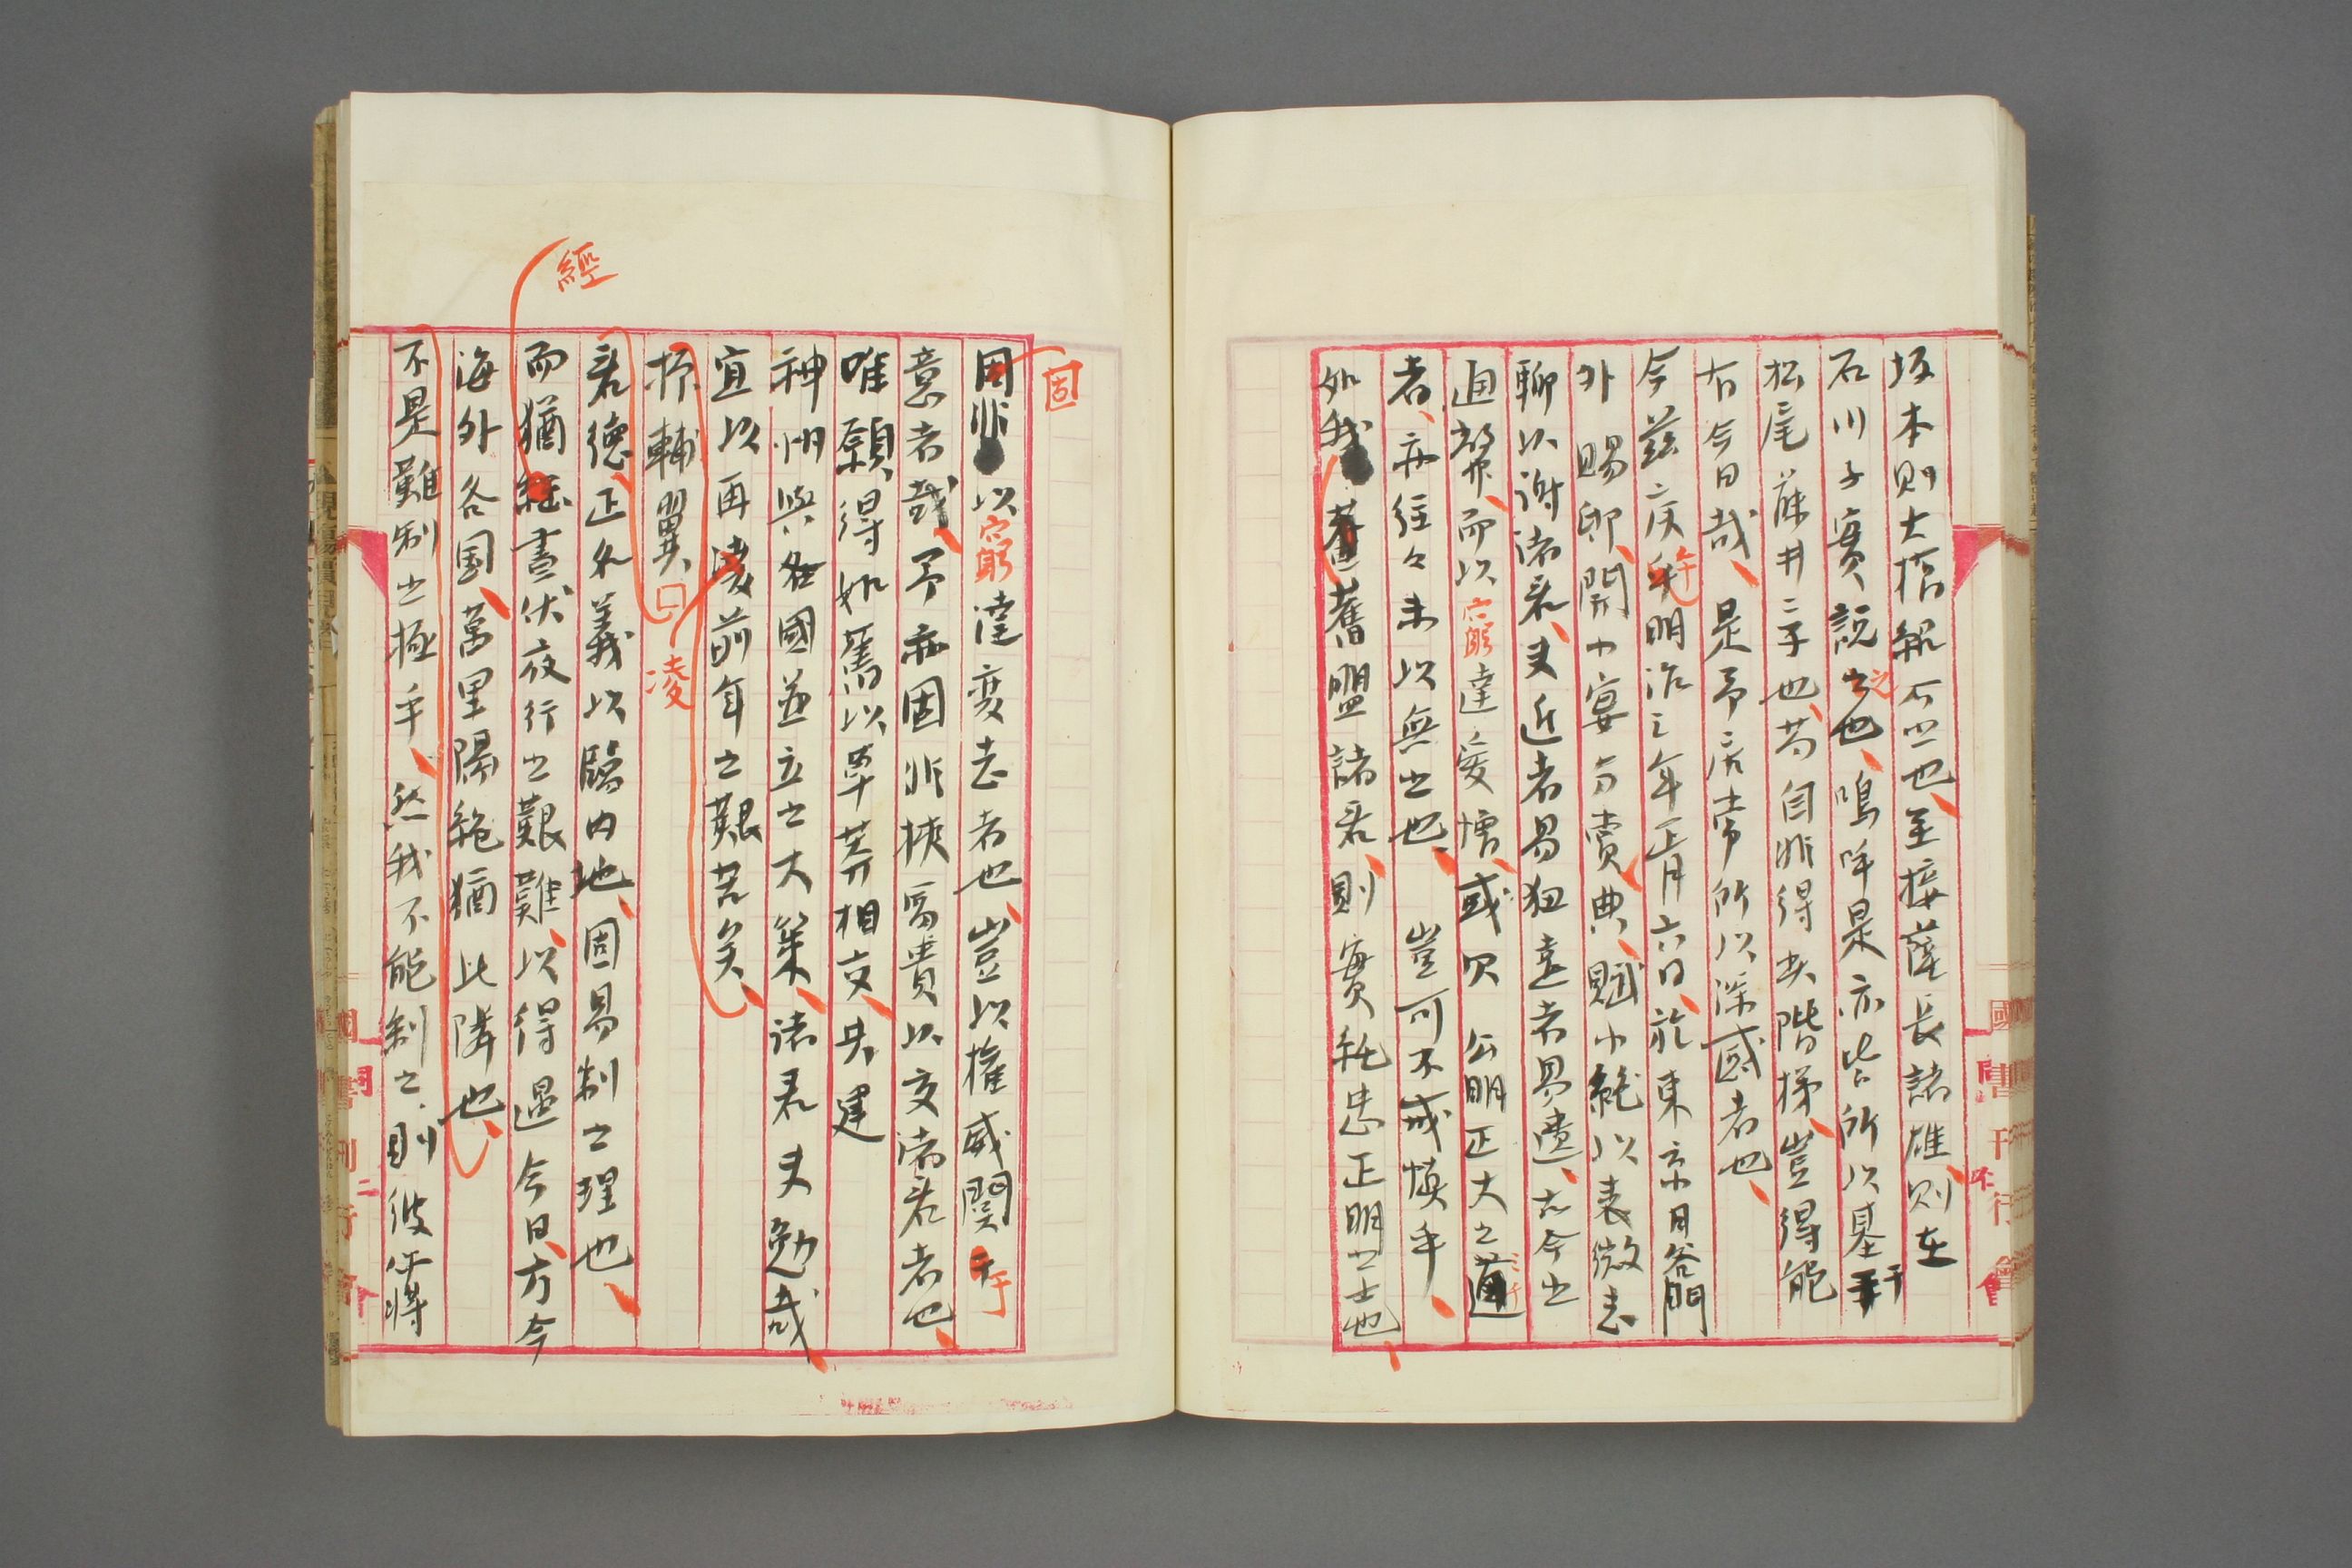 坂本則大
也、至接薩長諸雄、則在
石川子實説之也、嗚呼是亦皆所以基于
松尾藤井二子也、苟自非得其階梯、豈得能
有今日哉、是予居常所以深感者也、
今茲庚午明治三年正月六日、於東京日谷門
外賜邸、開小宴分賞典、賦小絶以表微志
聊以謝諸君、夫近者易狃遠者易遺、古今之
通弊、而以窮達愛憎、或欠公明正大之道
者、亦往々未以無之也、豈可不戒慎乎、
如我舊盟諸君、則實純忠正明之士也、
固
固非以窮達変志者也、豈以權威関于
意者哉、予亦固非挾富貴以交諸君者也、
唯願得如舊以草莽相交、共建
神州與各國並立之大策、諸君夫勉哉
宜以再凌前年之艱苦矣、
凌
輔翼
君徳、正名義以臨内地、固易制之理也、
經
而猶經晝伏夜行之艱難、以得遇今日、方今
海外各国、萬里隔絶猶比隣也、
不是難制之極乎、然我不能制之、則彼将
國書刊行會